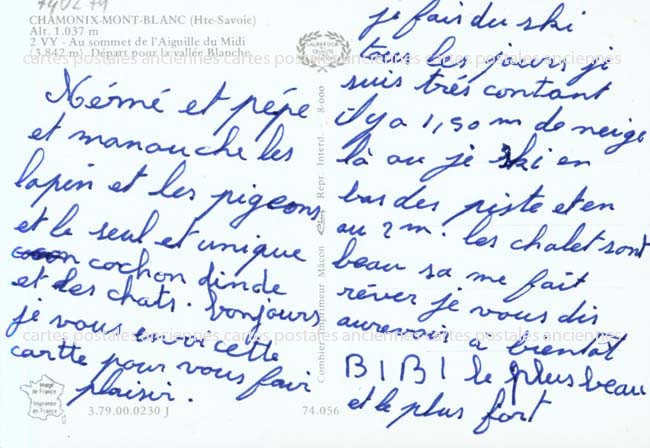 740274
CHAMONIX-MONT-BLANC (Hte-Savoie)
Alt. 1.037 m
2 VY - Au sommet de l'Aiguille du Midi
(3.842 m). Départ pour la vallée Blanche.
cartes postales anciennes cartes postales anciennes cartes postales anciennes
Mérmé et pépé
et manouche les
lapin et les pigeons
et le seul et unique
cochon dinde
et les chats. bonjours
je vous envoi cette
cartte pour vous fair
plaisir.
je fair du ski
tous les jours je
suis trés contant
il y a 1,50 m de neige
là ou je ski en
bas des piste et en
au 2 m. les chalet sont
beau sa me fait
réver je vous dis
aurevoir a bientot
BIBI le plus beau
et le plus fort
cartes postales anciennes cartes postales anciennes cartes postales anciennes
Combier Imprimeur Mâcon
Repr. Interd. 8-000
LABEUR D'OR
QUALITÉ
Image
de France
Imprimée
en France
3.79.00.0230 J
74.056